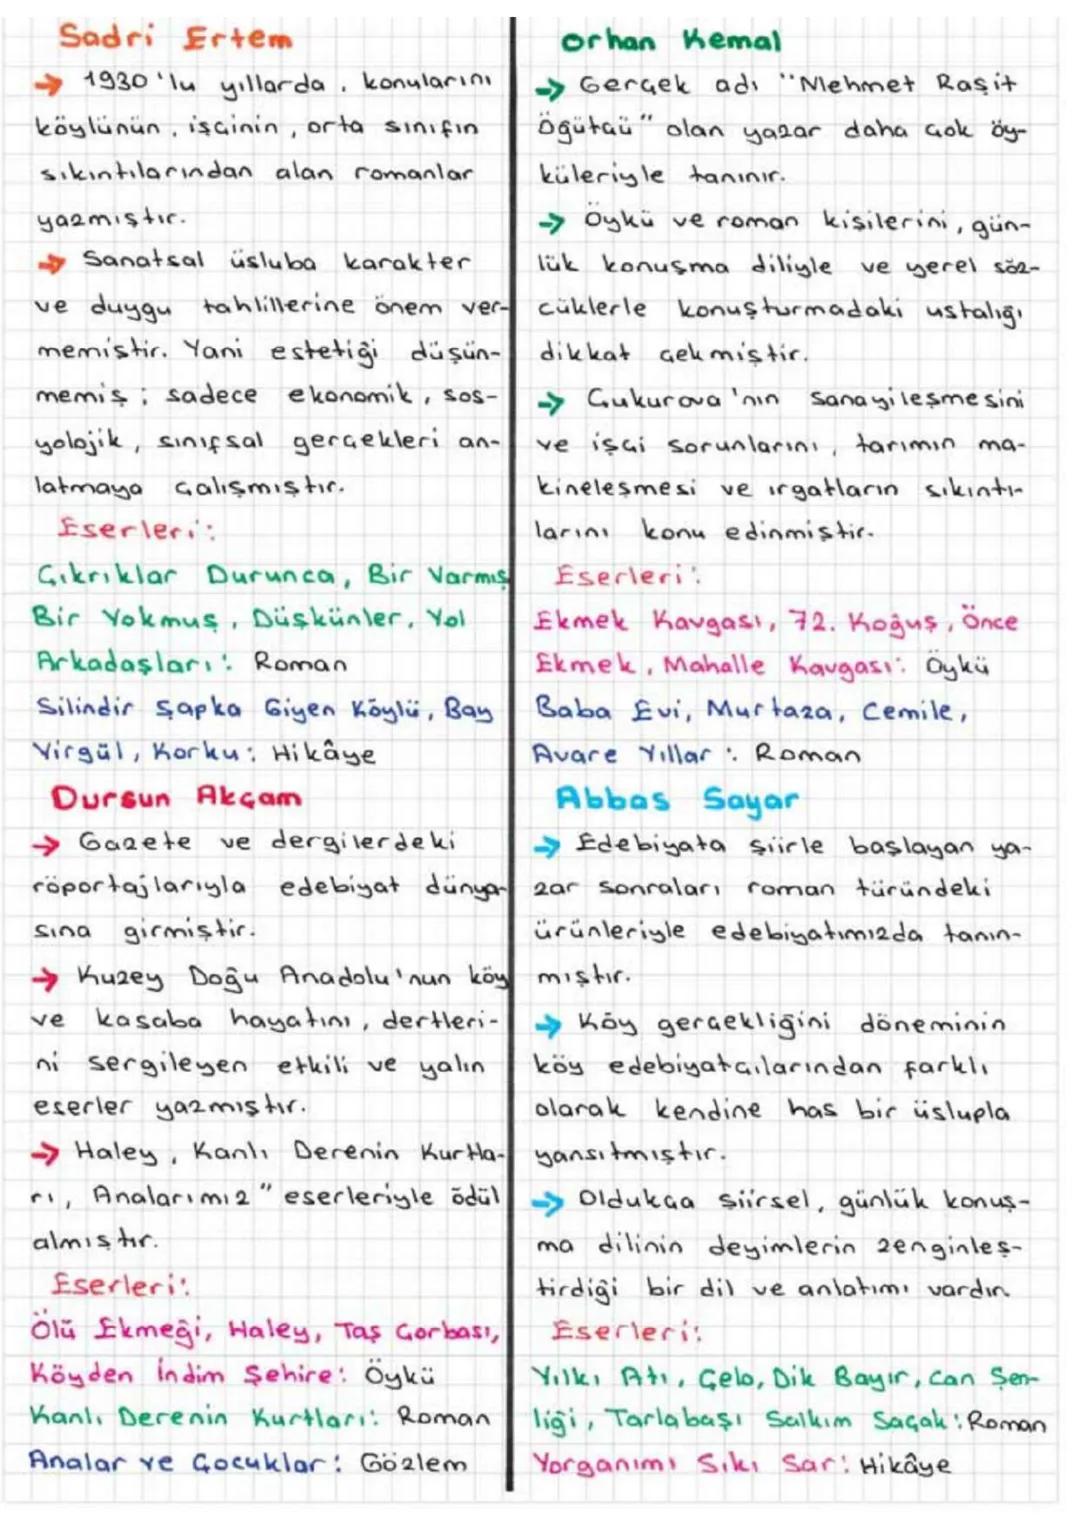 Sadri Ertem
→ 1930'lu yıllarda, konularını
köylünün, işçinin, orta sınıfın
sıkıntılarından alan romanlar
yazmıştır.
→ Sanatsal üsluba karakter
ve duygu tahlillerine önem ver-
memiştir. Yani estetiği düşün-
memiş; sadece ekonomik, sos-
yolojik, sınıfsal gerçekleri an-
latmaya çalışmıştır.
Eserleri:
Çıkrıklar Durunca, Bir Varmış
Bir Yokmuş, Düşkünler, Yol
Arkadaşları: Roman
Silindir Şapka Giyen Köylü, Bay
Virgül, Korku: Hikâye
Dursun Akçam
→ Gazete ve dergilerdeki
röportajlarıyla edebiyat dünya-
sına girmiştir.
→ Kuzey Doğu Anadolu'nun köy
ve kasaba hayatını, dertleri-
ni sergileyen etkili ve yalın
eserler yazmıştır.
→ Haley, Kanlı Derenin Kurtla-
rı, Analarımız" eserleriyle ödül
almıştır.
Eserleri:
Ölü Ekmeği, Haley, Taş Çorbası,
Köyden İndim Şehire: Öykü
Kanlı Derenin Kurtları: Roman
Analar ve Çocuklar: Gözlem
Orhan Kemal
→ Gerçek adı "Mehmet Raşit
Öğütçü" olan yazar daha çok öy-
küleriyle tanınır.
→ Öykü ve roman kişilerini, gün-
lük konuşma diliyle ve yerel söz-
cüklerle konuşturmadaki ustalığı
dikkat çekmiştir.
→ Çukurova'nın sanayileşmesini
ve işçi sorunlarını, tarımın ma-
kineleşmesi ve ırgatların sıkıntı-
larını konu edinmiştir.
Eserleri:
Ekmek Kavgası, 72. Koğuş, Önce
Ekmek, Mahalle Kavgası: Öykü
Baba Evi, Murtaza, Cemile,
Avare Yıllar: Roman
Abbas Sayar
→ Edebiyata şiirle başlayan ya-
zar sonraları roman türündeki
ürünleriyle edebiyatımızda tanın-
mıştır.
→ Köy gerçekliğini döneminin
köy edebiyatçılarından farklı
olarak kendine has bir üslupla
yansıtmıştır.
→ Oldukça şiirsel, günlük konuş-
ma dilinin deyimlerin zenginleş-
tirdiği bir dil ve anlatımı vardır.
Eserleri:
Yılkı Atı, Çelo, Dik Bayır, Can Şen-
liği, Tarlabaşı Salkım Saçak: Roman
Yorganımı Sıkı Sar: Hikâye